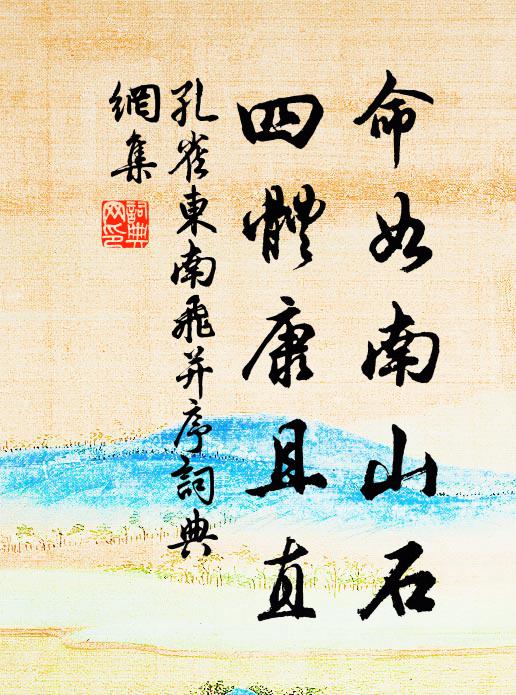 命如南山石
四體康且直
孔雀東南飛并序詞典
網集
詞典
网印